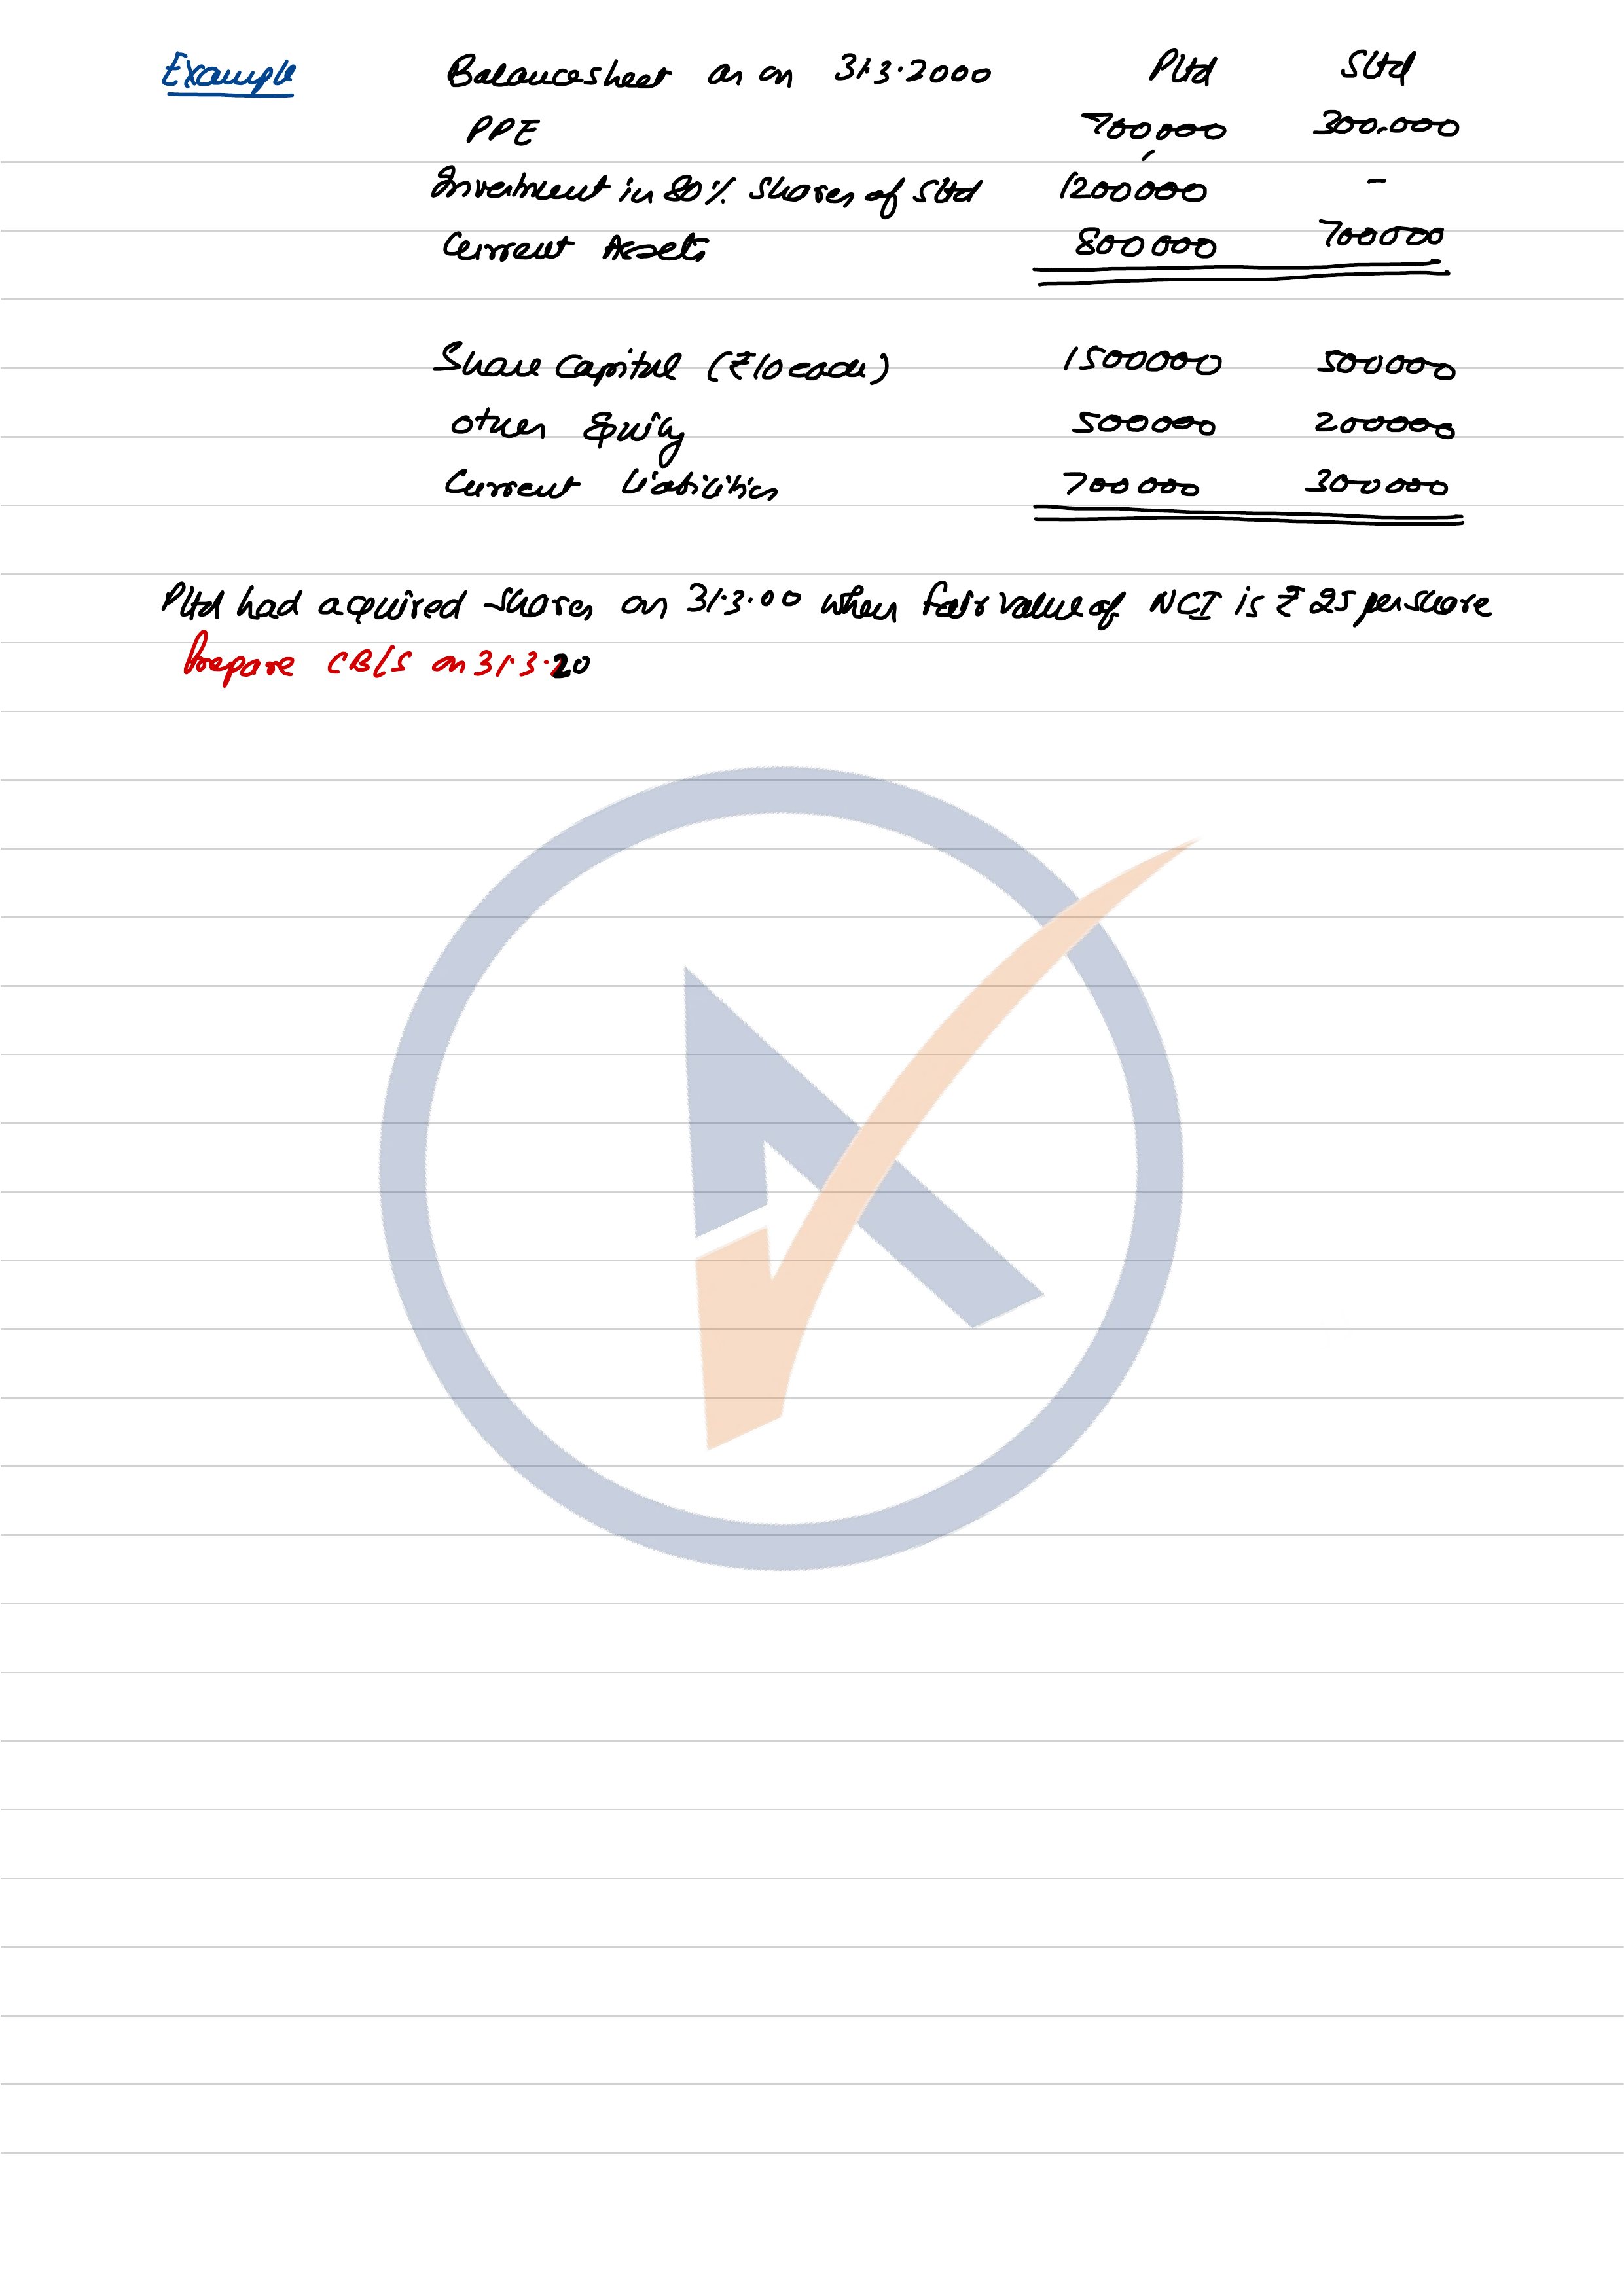 Example Balancesheet as on 31.3.2000 Pltd Sltd
PPE 700,000 300,000
Investment in 80% shares of Sltd 1200000 -
Current Assets 800000 700000
Share Capital (₹10 each) 1500000 500000
other Equity 500000 200000
Current liabilities 700000 300000
Pltd had acquired shares on 31.3.00 when fair value of NCI is ₹ 25 per share
Prepare CB/S on 31.3.20